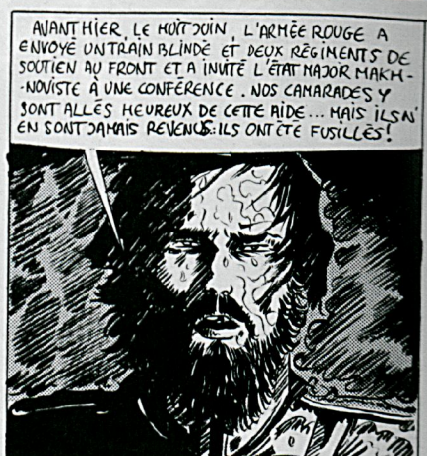 AVANT HIER, LE HUIT JUIN, L'ARMÉE ROUGE A
ENVOYÉ UN TRAIN BLINDÉ ET DEUX RÉGIMENTS DE
SOUTIEN AU FRONT ET A INVITÉ L'ÉTAT MAJOR MAKH-
-NOVISTE À UNE CONFÉRENCE. NOS CAMARADES Y
SONT ALLÉS HEUREUX DE CETTE AIDE... MAIS ILS N'
EN SONT JAMAIS REVENUS: ILS ONT ÉTÉ FUSILLÉS!